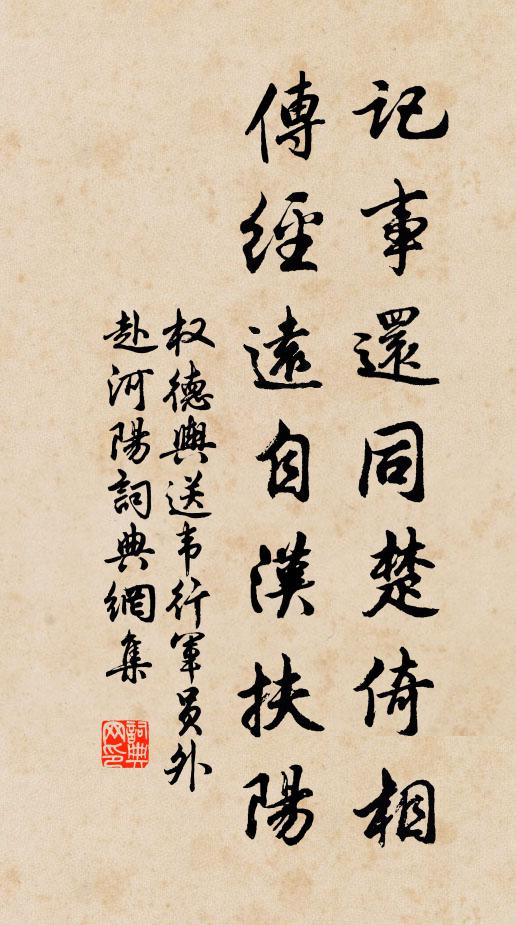 記事還同楚倚相
傳經遠自漢扶陽
权德輿送韦行軍员外
赴河陽詞典網集
詞典网印